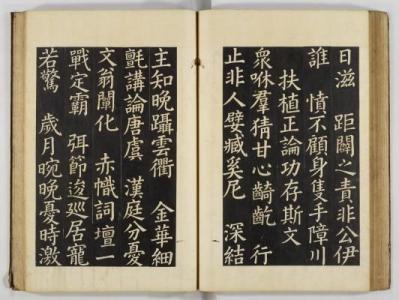 日滋 距闢之責非公伊
誰 憤不顧身隻手障川
扶植正論功存斯文
衆咻羣猜甘心齮齕 行
止非人嬖臧奚尼 深結
主知晚躡雲衢 金華細
氈講論唐虞 漢庭分憂
文翁闡化 赤幟詞壇一
戰定霸 弭節逡廵居寵
若驚 歲月晼晚憂時激